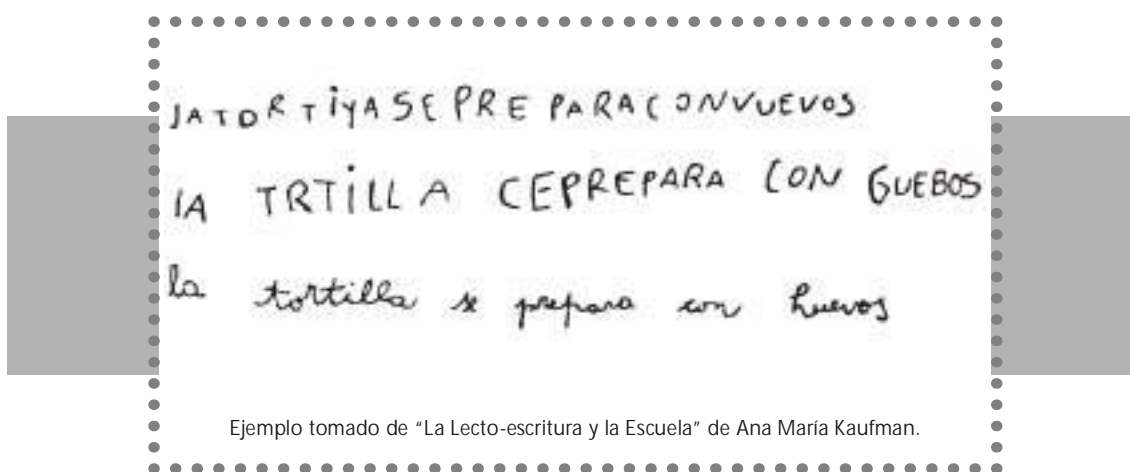 lATORTiYASEPREPARACONVUEVOS
lA TRTiLLA CEPREPARA CON GUEBOS
la tortilla se prepara con huevos
Ejemplo tomado de "La Lecto-escritura y la Escuela" de Ana María Kaufman.